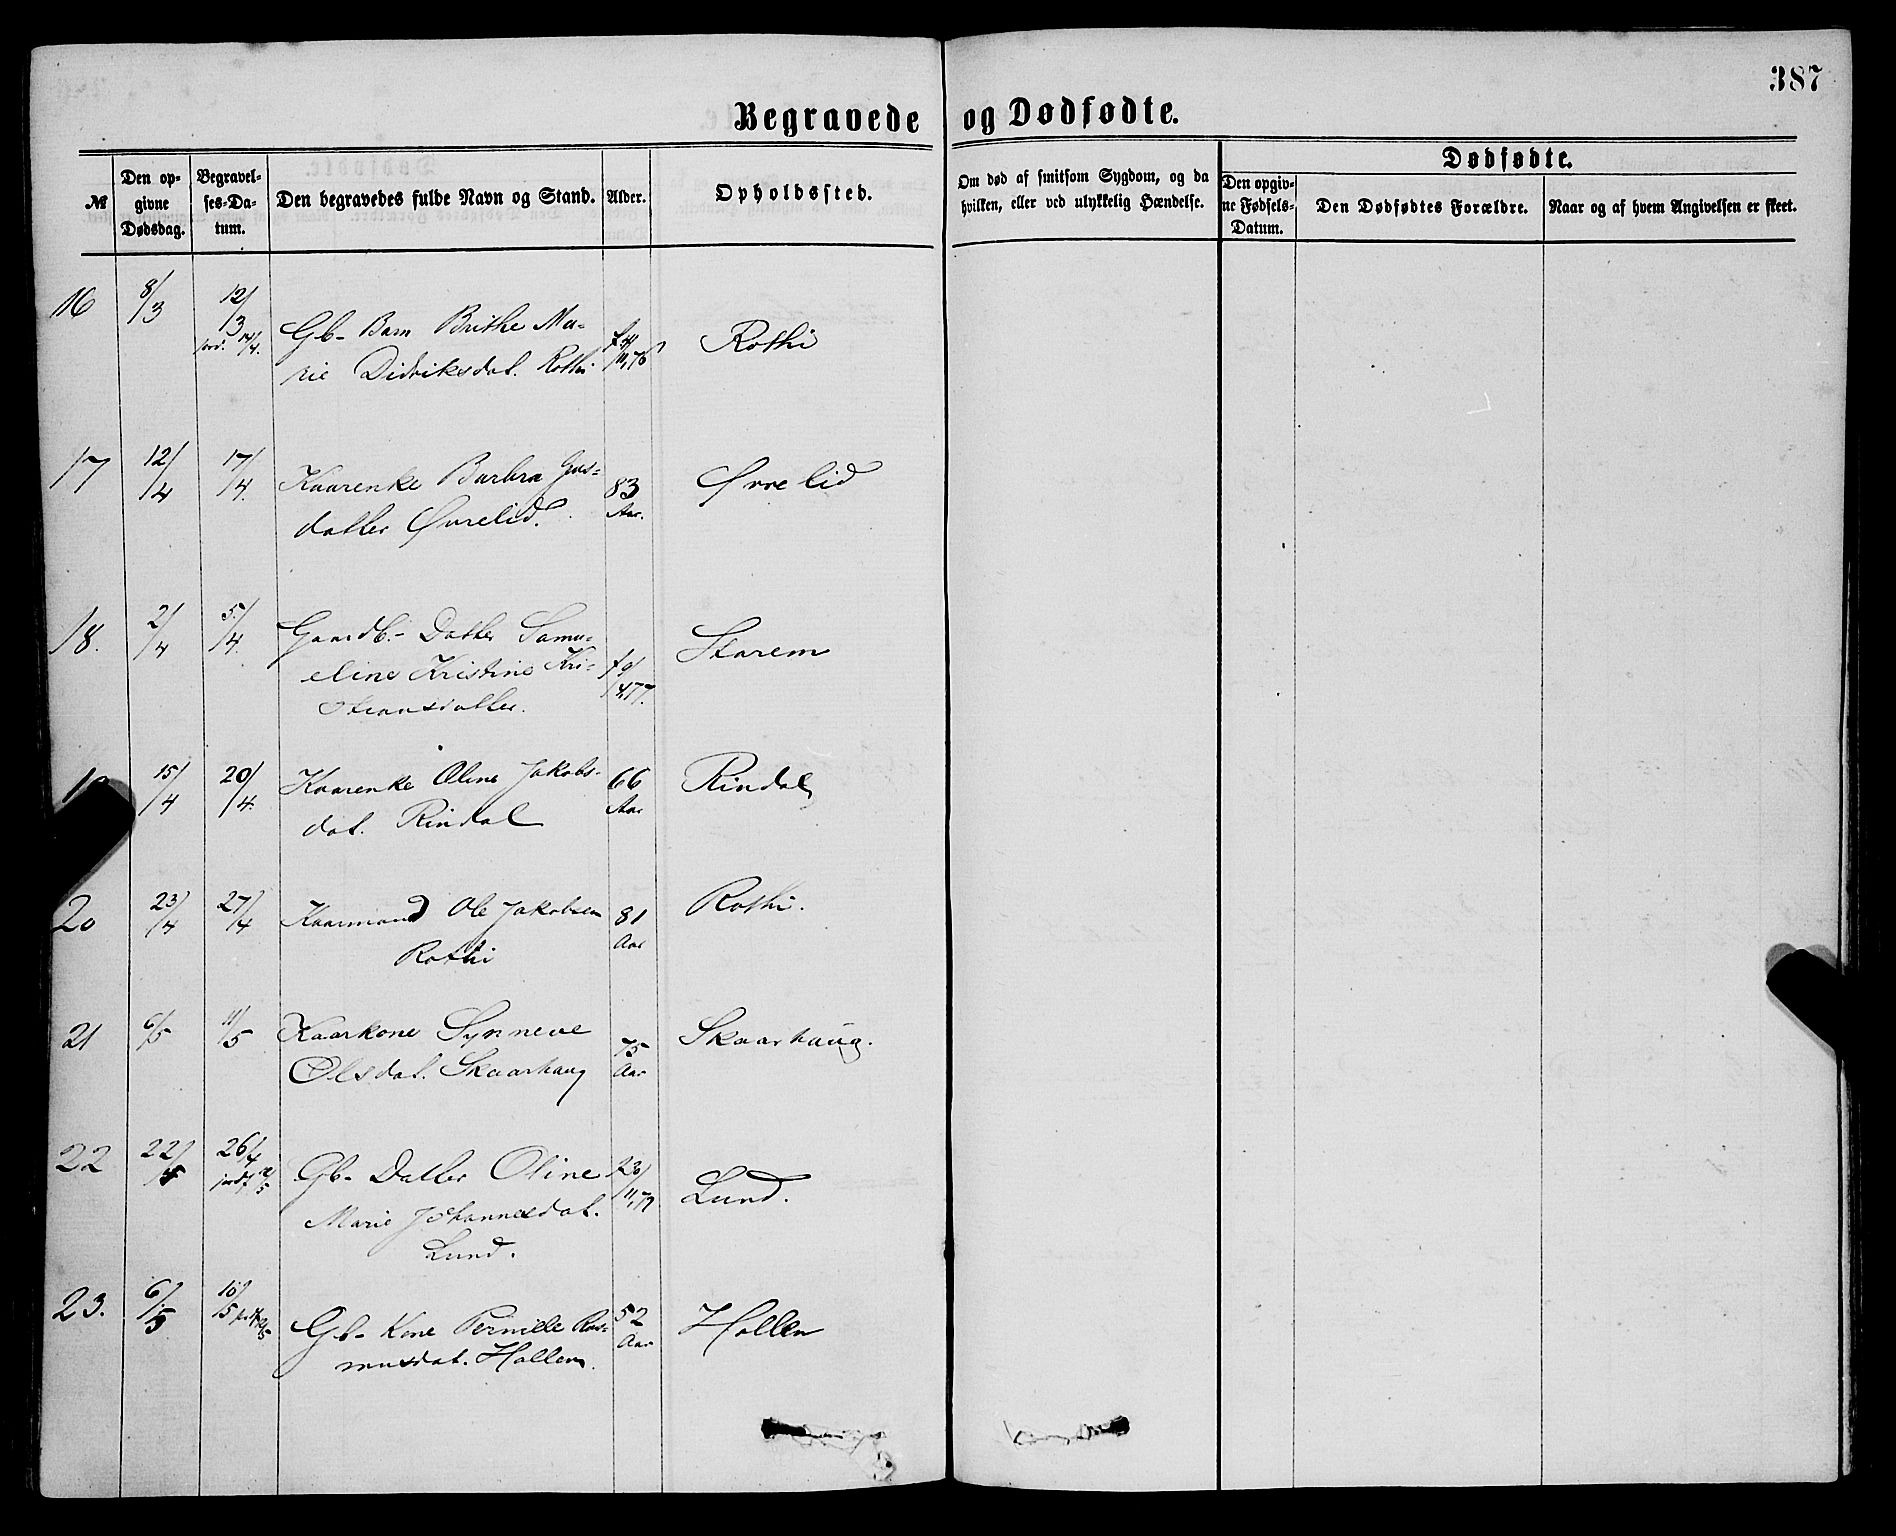 387
Begravede og Dødfødte.
№
Den opgivne Dødsdag.
Begravelses-Datum.
Den begravedes fulde Navn og Stand.
Alder.
Opholdssted.
Om død af smitsom Sygdom, og da hvilken, eller ved ulykkelig Hændelse.
Dødfødte.
Den opgivne Fødsels-Datum.
Den Dødfødtes Forældre.
Naar og af hvem Angivelsen er skeet.
16 8/3 12/3 Gb- Barn Brithe Ma- Rothi
jord. 14/4. rie Didriksdat. Rothi
17 12/4 17/4. Kaarenke Barbra 83 Øvrelid
datter Øvrelid. Aar.
18. 2/4 5/4. Gaardb.- Datter Samu- Starem
eline Kristine Kri- f 9/4,77.
stiansdatter.
15/4 20/4. Kaarenke Oline Jakobs- 66 Rindal
dat. Rindal Aar
20 23/4 27/4 Kaarmand Ole Jakobsen 81 Rothi.
Rothi Aar
21 6/5 11/5 Kaarkone Synneve 75 Skaarhaug.
Olsdat. Skaarhaug Aar
22 22/5 26/4 Gb- Datter Oline Lund.
Marie Johannesdat.
Lund.
23. 6/5 10/5 Gb- Kone Pernille Ras- 52 Hollen
musdat. Hollen. Aar